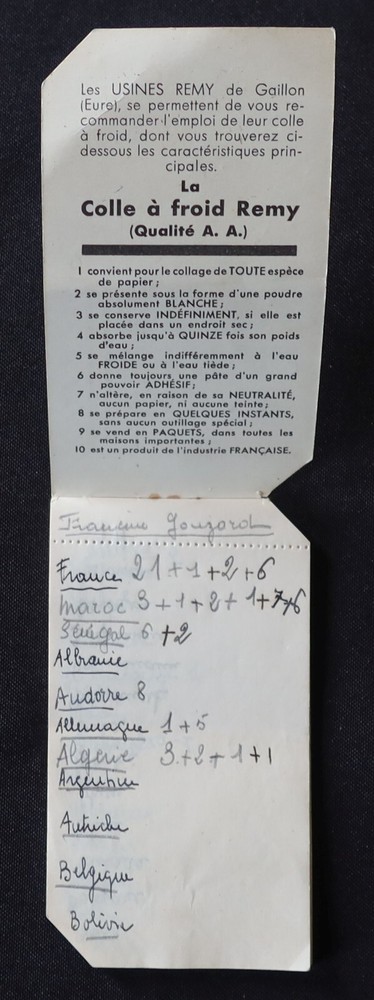 Les USINES REMY de Gaillon
(Eure), se permettent de vous re-
commander l'emploi de leur colle
à froid, dont vous trouverez ci-
dessous les caractéristiques prin-
cipales.
La
Colle à froid Remy
(Qualité A. A.)
1 convient pour le collage de TOUTE espèce
de papier ;
2 se présente sous la forme d'une poudre
absolument BLANCHE ;
3 se conserve INDÉFINIMENT, si elle est
placée dans un endroit sec ;
4 absorbe jusqu'à QUINZE fois son poids
d'eau ;
5 se mélange indifféremment à l'eau
FROIDE ou à l'eau tiède ;
6 donne toujours une pâte d'un grand
pouvoir ADHÉSIF ;
7 n'altère, en raison de sa NEUTRALITÉ,
aucun papier, ni aucune teinte ;
8 se prépare en QUELQUES INSTANTS,
sans aucun outillage spécial ;
9 se vend en PAQUETS, dans toutes les
maisons importantes ;
10 est un produit de l'industrie FRANÇAISE.
Francine
France 21+1+2+6
Maroc 3+1+2+1+7+6
Sénégal 6+2
Albanie
Andorre 8
Allemagne 1+5
Algérie 3+2+1+1
Argentine
Autriche
Belgique
Bolivie